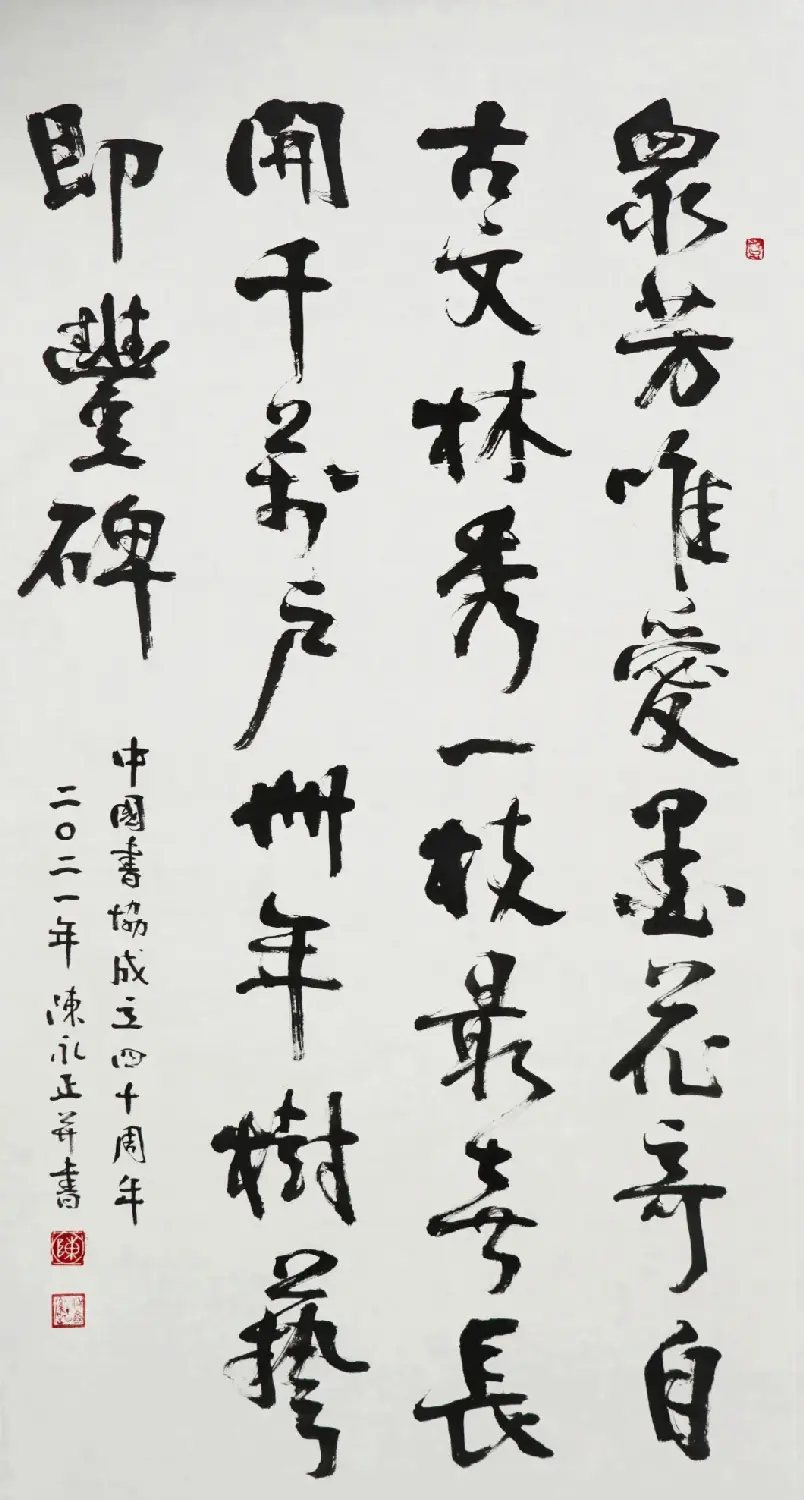 衆芳唯愛墨花奇自
古文林秀一枝最喜長
開千萬户卌年樹藝
即豐碑
中國書協成立四十周年
二〇二一年陳永正并書
陳